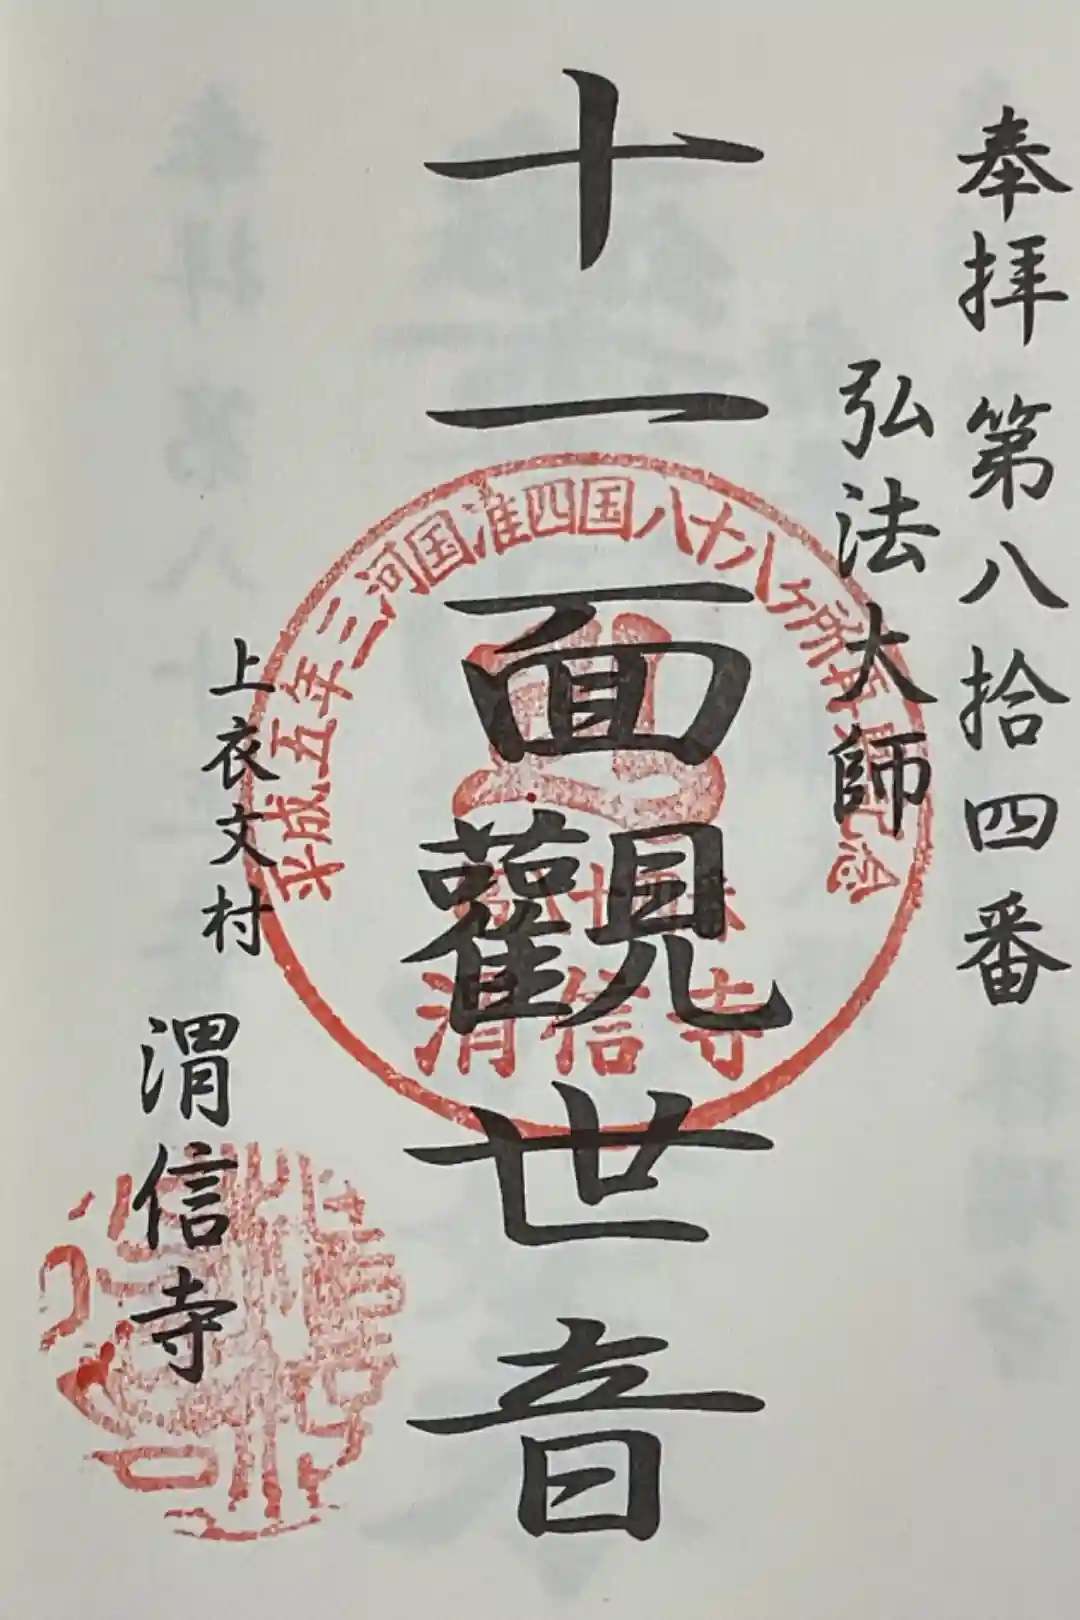 奉拝 第八拾四番
弘法大師
十一面觀世音
平成五年三河国准四国八十八ヶ所再興記念
渭信寺
上衣文村
渭信寺